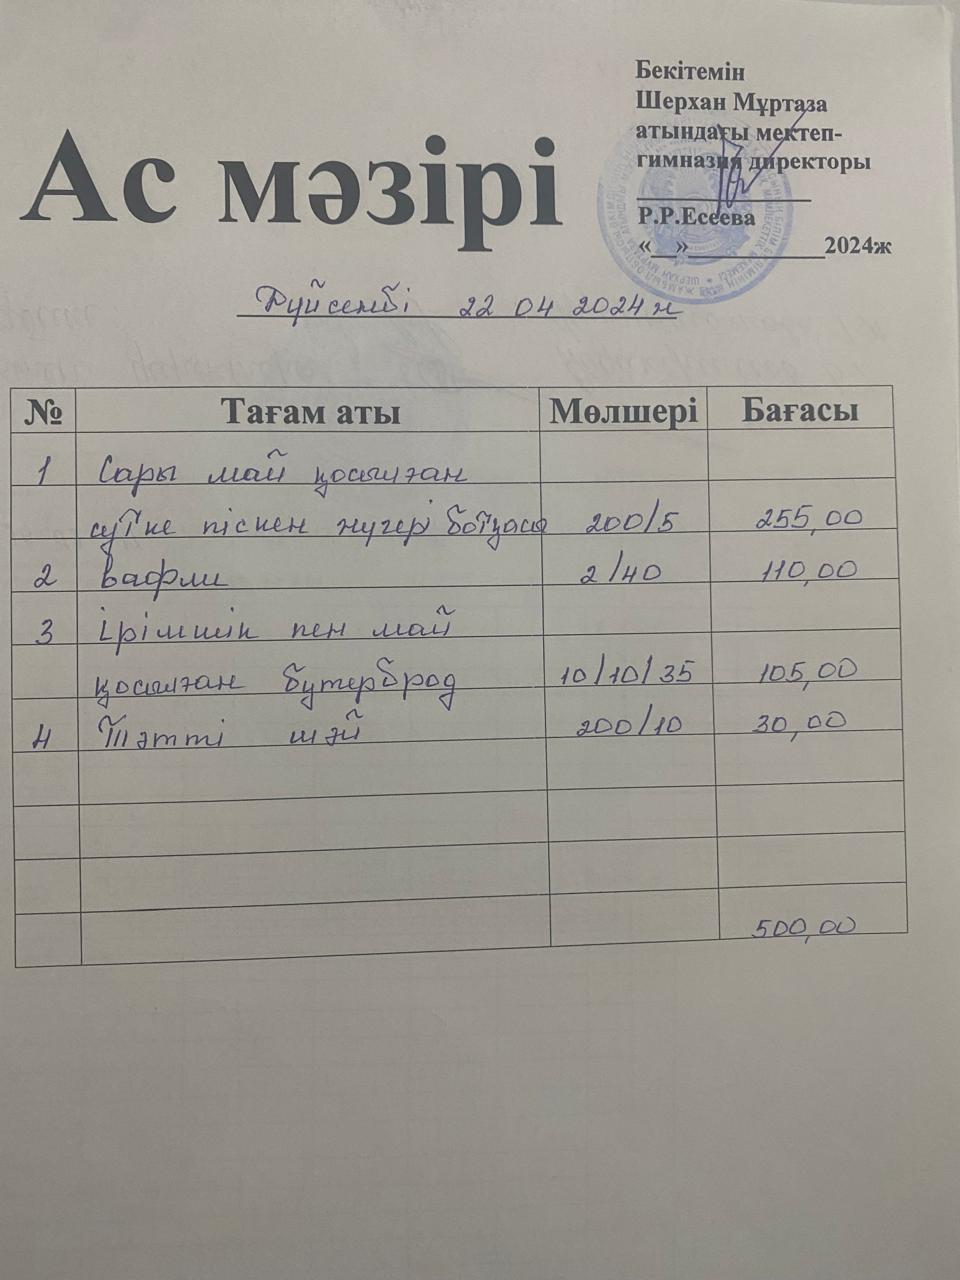 Бекітемін
Шерхан Мұртаза
атындағы мектеп-
гимназия директоры
Ас мәзірі
Р.Р.Есеева
«__»____________2024ж
Дүйсенбі 22 04 2024ж
№ Тағам аты Мөлшері Бағасы
1 Сары май қосылған
сүтке піскен жүгері ботқасы 200/5 255,00
2 вафли 2/40 110,00
3 Ірімшік пен май
қосылған бутерброд 10/10/35 105,00
4 Тәтті шәй 200/10 30,00
500,00